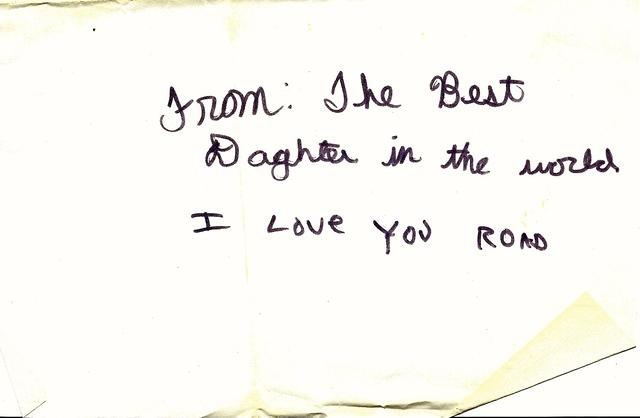 From: The Best
Daghter in the world
I LOVE YOU ROAD